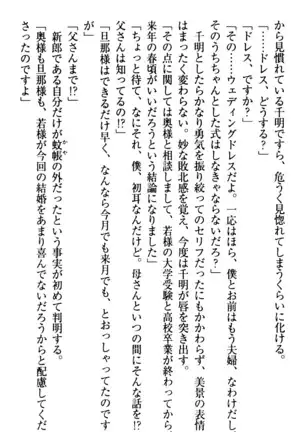 から見慣れている千明ですら、危うく見惚れてしまうくらいに。
「……ドレス、どうする？」
「ドレス、ですか？」
「その……ウェディングドレスだよ。一応はほら、僕とお前はもう夫婦、なわけだし。
そのうちちゃんとした式はしなきゃならないだろう？」
千明としたらかなり勇気を振り絞ってのセリフだったにもかかわらず、美景の表情
はまったく変わらない。妙な敗北感を覚え、今度は千明が唇を突き出す。
「その点に関しては奥様と相談しまして、若様の大学受験と高校卒業が終わってから、
来年の春頃がいいだろうという結論になりました」
「ちょっと待て、なにそれ、僕、初耳なんだけど。母さんといつの間にそんな話を!?
父さんは知ってるの!?」
「旦那様はできるだけ早く、なんなら今月でも来月でも、とおっしゃってたのです
が」
「父さんまで!?」
新郎である自分だけが蚊帳の外だったという事実が初めて判明する。
「奥様も旦那様も、若様が今回の結婚をあまり喜んでないだろうからと配慮してくだ
さったのですよ」